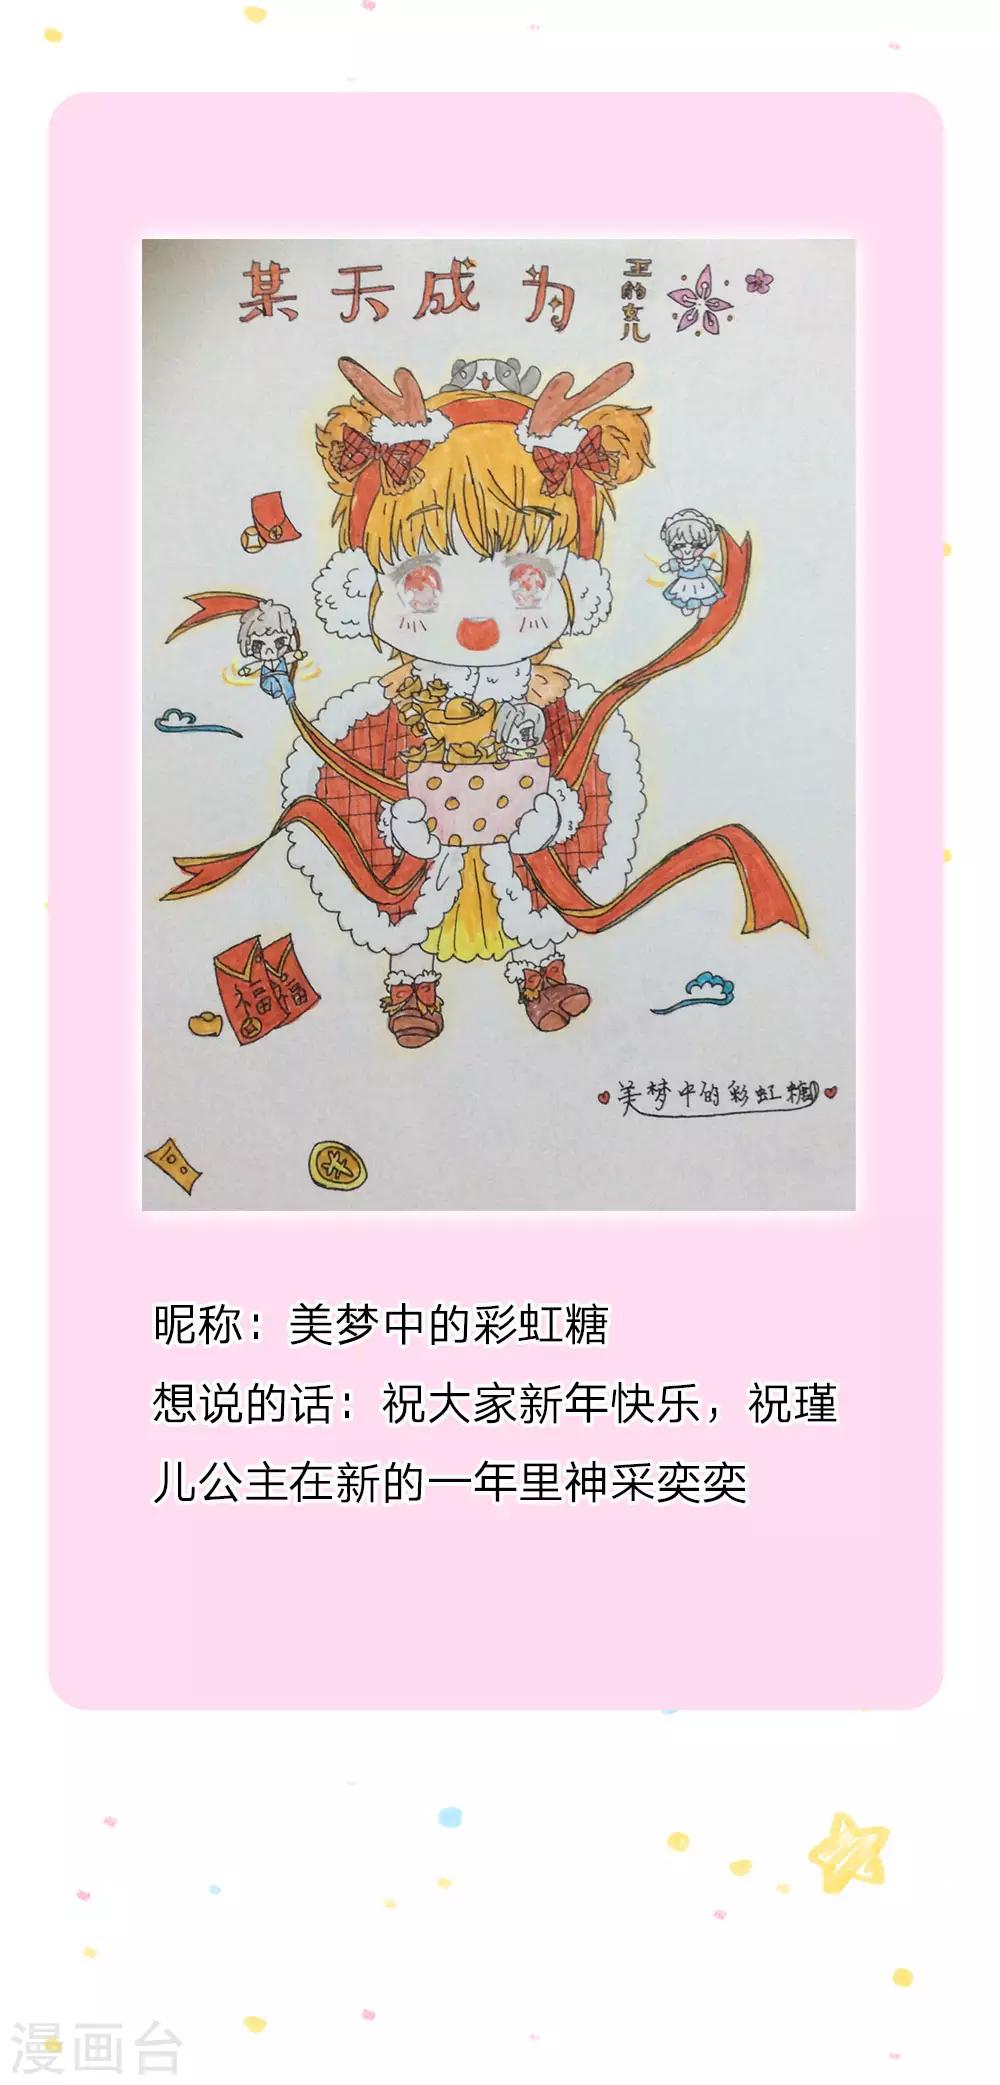 某天成为
王的女儿
福
福
美梦中的彩虹糖
100
昵称：美梦中的彩虹糖
想说的话：祝大家新年快乐，祝瑾
儿公主在新的一年里神采奕奕
漫画台